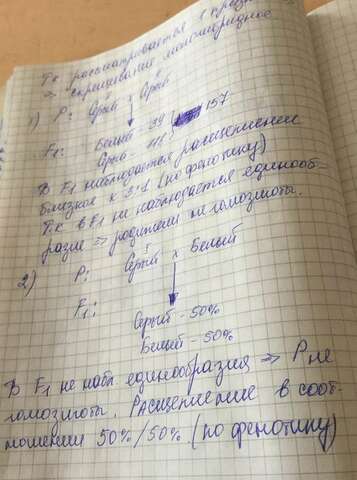 Т.к рассматривается 1 признак
⇒ скрещивание моногибридное
1) P: Серый x Серый
F1: Белый - 39
Серо - 118
157
В F1 наблюдается расщепление
близкое к 3:1 (по фенотипу)
Т.к в F1 не наблюдается единооб-
разие ⇒ родители не гомозиготы.
2) P: Серый x Белый
F1:
Серый - 50%
Белый - 50%
В F1 не набл единообразия ⇒ P не
гомозиготы. Расщепление в соот-
ношении 50%/50% (по фенотипу)